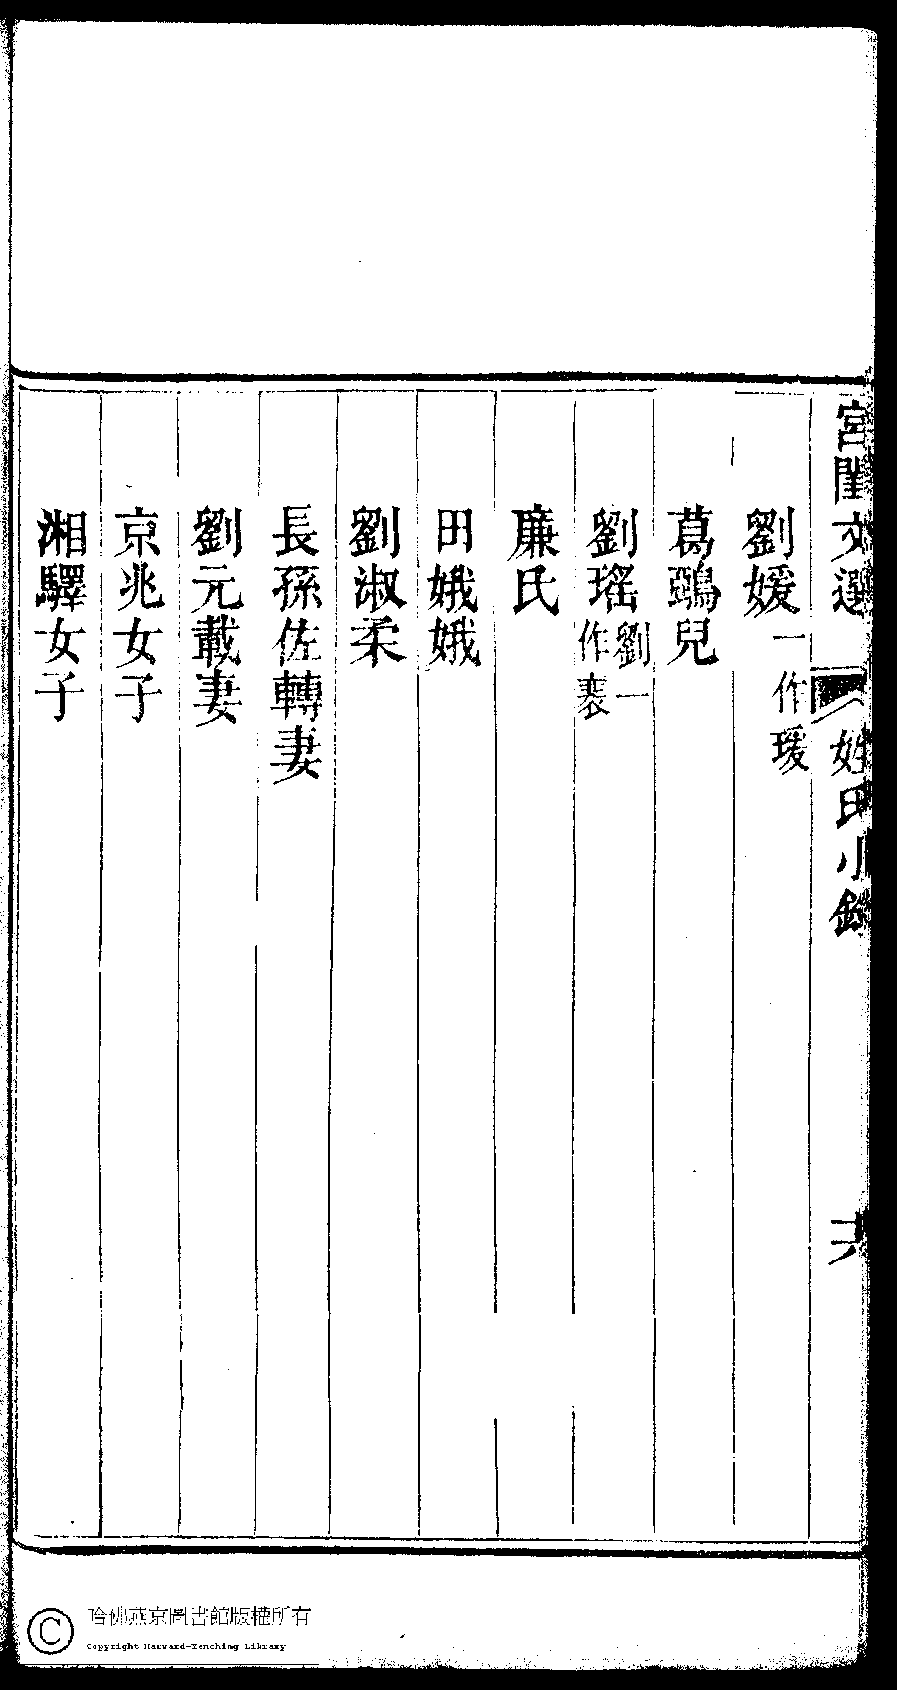 宮閨文選
姓氏小錄
劉媛一作瑗
葛鵶兒
劉瑤劉一作裴
廉氏
田娥娥
劉淑柔
長孫佐轉妻
劉元載妻
京兆女子
湘驛女子
哈佛燕京圖書館版權所有
Copyright Harvard-Yenching Library